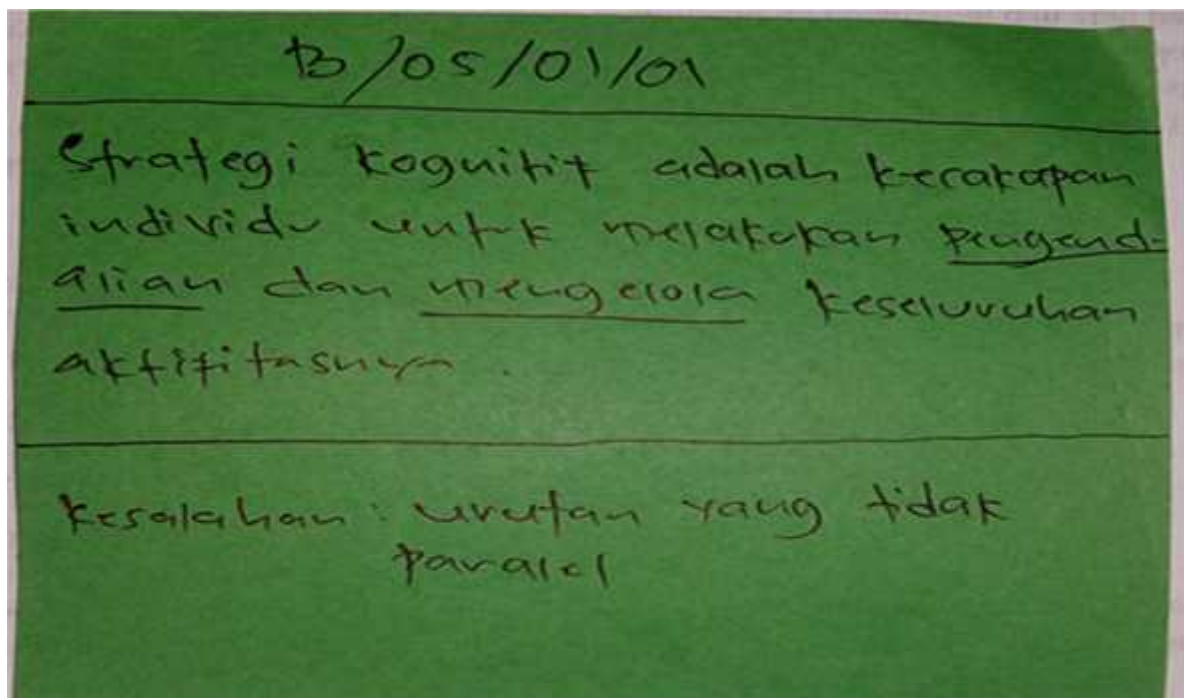 B/05/01/01
Strategi kognitif adalah kecakapan
individu untuk melakukan pengend-
alian dan mengelola keseluruhan
aktifitasnya.
Kesalahan: urutan yang tidak
paralel